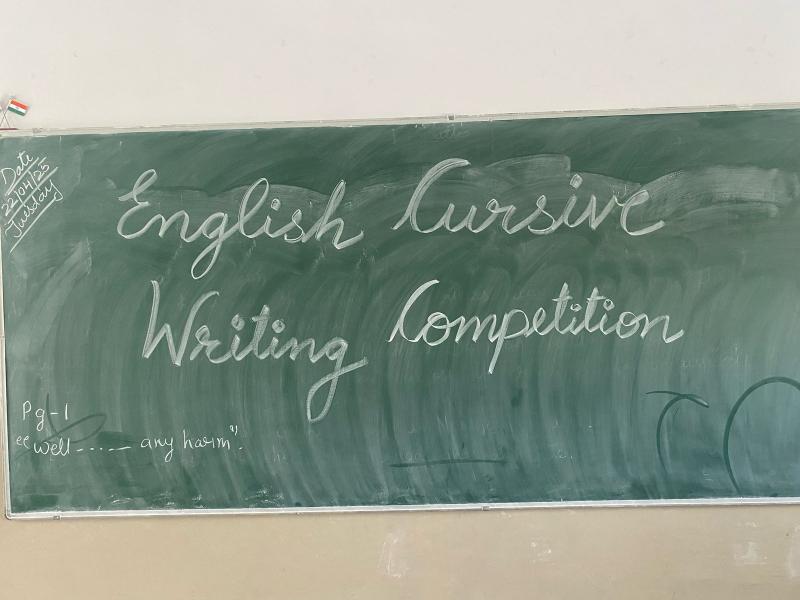 Date
22/04/25
Tuesday
English Cursive
Writing Competition
Pg-1
"Well ..... any harm".